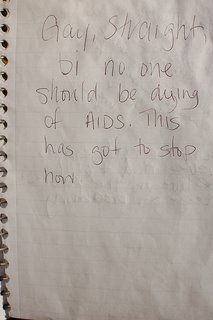 Gay, Straight,
bi no one
should be dying
of AIDS. This
has got to stop
now